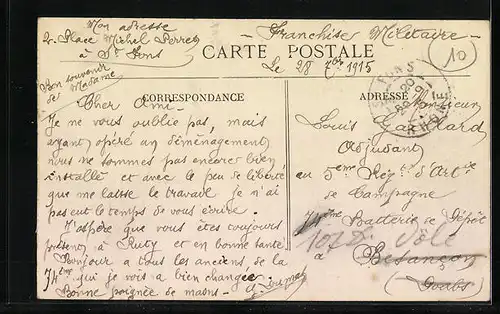 Mon adresse
2. Place Michel Perret
à St Fons
- Franchise Militaire -
10
CARTE POSTALE
Le 28 7bre 1915
Bon souvenir
de Madame
CORRESPONDANCE
ADRESSE
RHONE
Cher Ami.
Je ne vous oublie pas, mais
ayant opéré un déménagement
nous ne sommes pas encore bien
installé et avec le peu de liberté
que me laisse le travail je n'ai
pas eut le temps de vous écrire.
J'espère que vous êtes toujours
à Ruty et en bonne santé
Bonjour a tous les anciens, de la
74ème qui je vois a bien changée
Bonne poignée de mains -
Monsieur
Louis
Adjudant
au 5ème Régt d'Artie
de Campagne
74ème Batterie de Dépôt
107e Dôle
a Besançon
(Doubs)